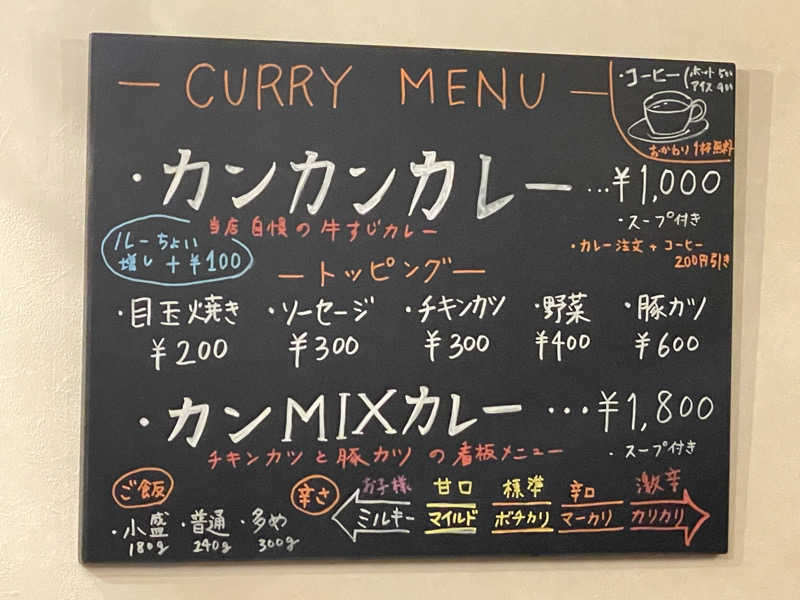 — CURRY MENU —
・コーヒー
ホット
アイス
おかわり1杯無料
・カンカンカレー …¥1,000
当店自慢の牛すじカレー
・スープ付き
・カレー注文+コーヒー
200円引き
ルーちょい
増し+¥100
—トッピング—
・目玉焼き ・ソーセージ ・チキンカツ ・野菜 ・豚カツ
¥200 ¥300 ¥300 ¥400 ¥600
・カンMIXカレー …¥1,800
チキンカツと豚カツの看板メニュー
・スープ付き
ご飯
・小盛 ・普通 ・多め
180g 240g 300g
辛さ
お子様 甘口 標準 辛口 激辛
ミルキー マイルド ボチカリ マーカリ カリカリ